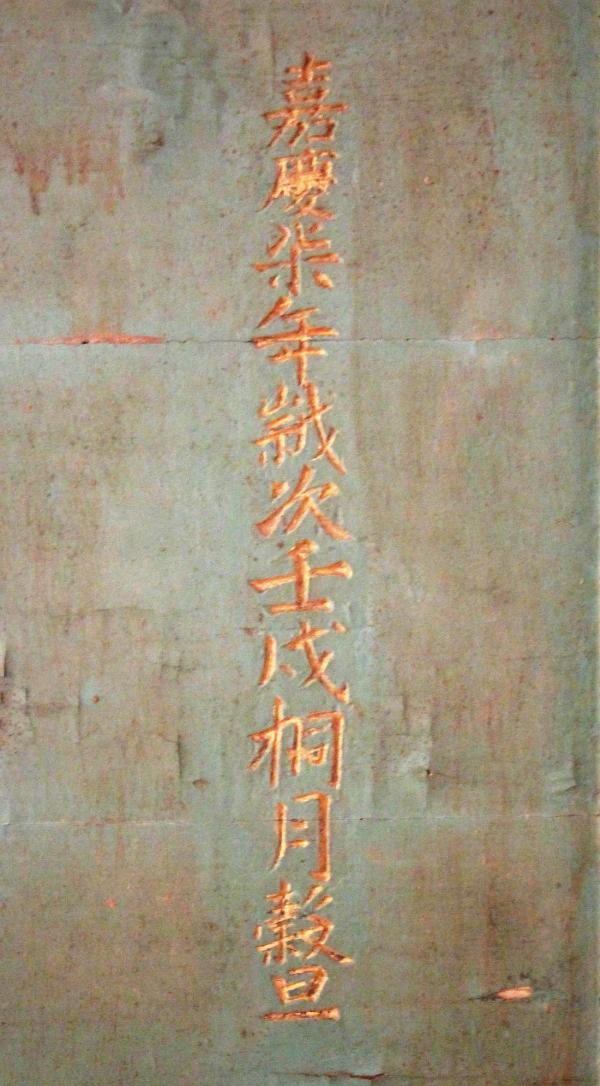 嘉慶柒年歲次壬戌桐月穀旦